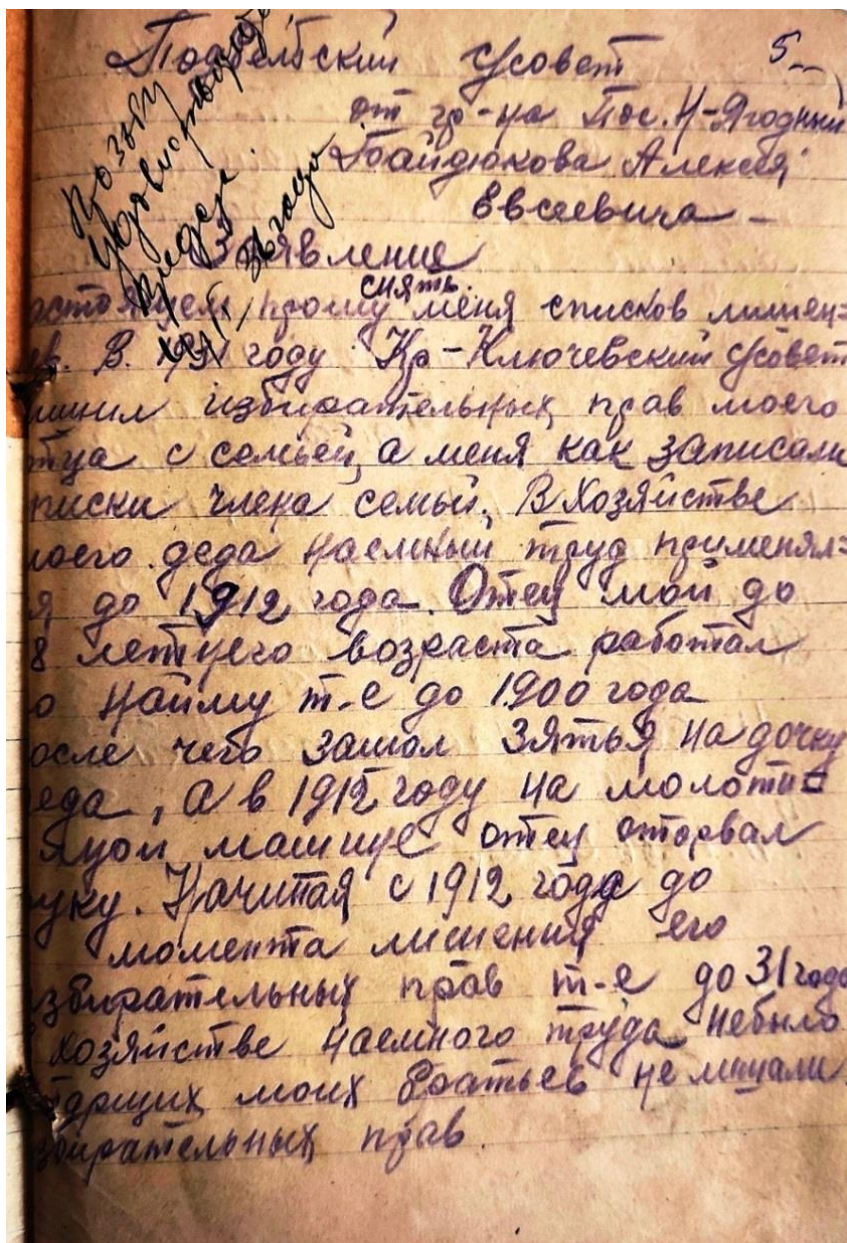 Подбельский с/совет 5
от гр-на Пос. Н-Ягодный
Байдюкова Алексея
Евсеевича
Заявление
снять
астоящем прошу меня списков лишен=
В. 1931 году Кр-Ключевский с/совет
ишил избирательных прав моего
отца с семьей, а меня как записали
писки члена семьи. В хозяйстве
моего деда наемный труд применял=
я до 1912 года. Отец мой до
8 летнего возраста работал
о найму т-е до 1900 года
осле чего зашол зятья на дочку
еда, а в 1915 году на молоти=
яной машине отец оторвал
руку. Начиная с 1912 года до
момента лишения его
избирательных прав т-е до 31 года
хозяйстве наемного труда небыло
тарших моих братьев не лишали
збирательных прав.